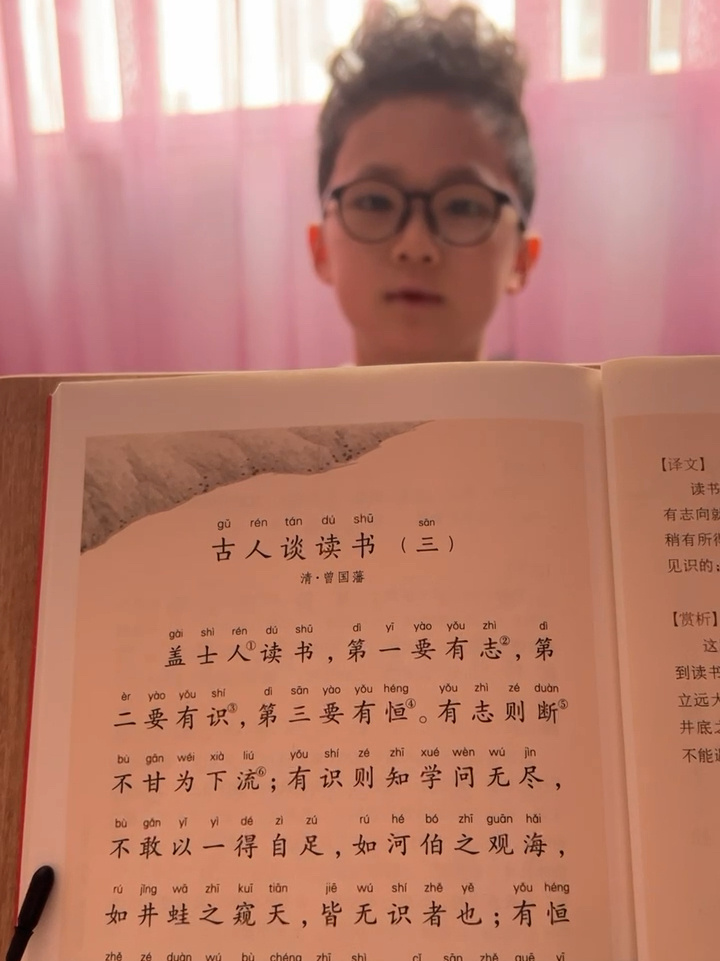 gǔ rén tán dú shū sān
古人谈读书（三）
清·曾国藩
gài shì rén dú shū dì yī yào yǒu zhì dì
盖士人①读书，第一要有志②，第
èr yào yǒu shí dì sān yào yǒu héng yǒu zhì zé duàn
二要有识③，第三要有恒④。有志则断⑤
bù gān wéi xià liú yǒu shí zé zhī xué wèn wú jìn
不甘为下流⑥；有识则知学问无尽，
bù gǎn yǐ yì dé zì zú rú hé bó zhī guān hǎi
不敢以一得自足，如河伯之观海，
rú jǐng wā zhī kuī tiān jiē wú shí zhě yě yǒu héng
如井蛙之窥天，皆无识者也；有恒
zhě zé duàn wú bù chéng zhī shì cǐ sān zhě quē yī
【译文】
读书
有志向就
稍有所得
见识的：
【赏析】
这
到读书
立远大
井底之
不能